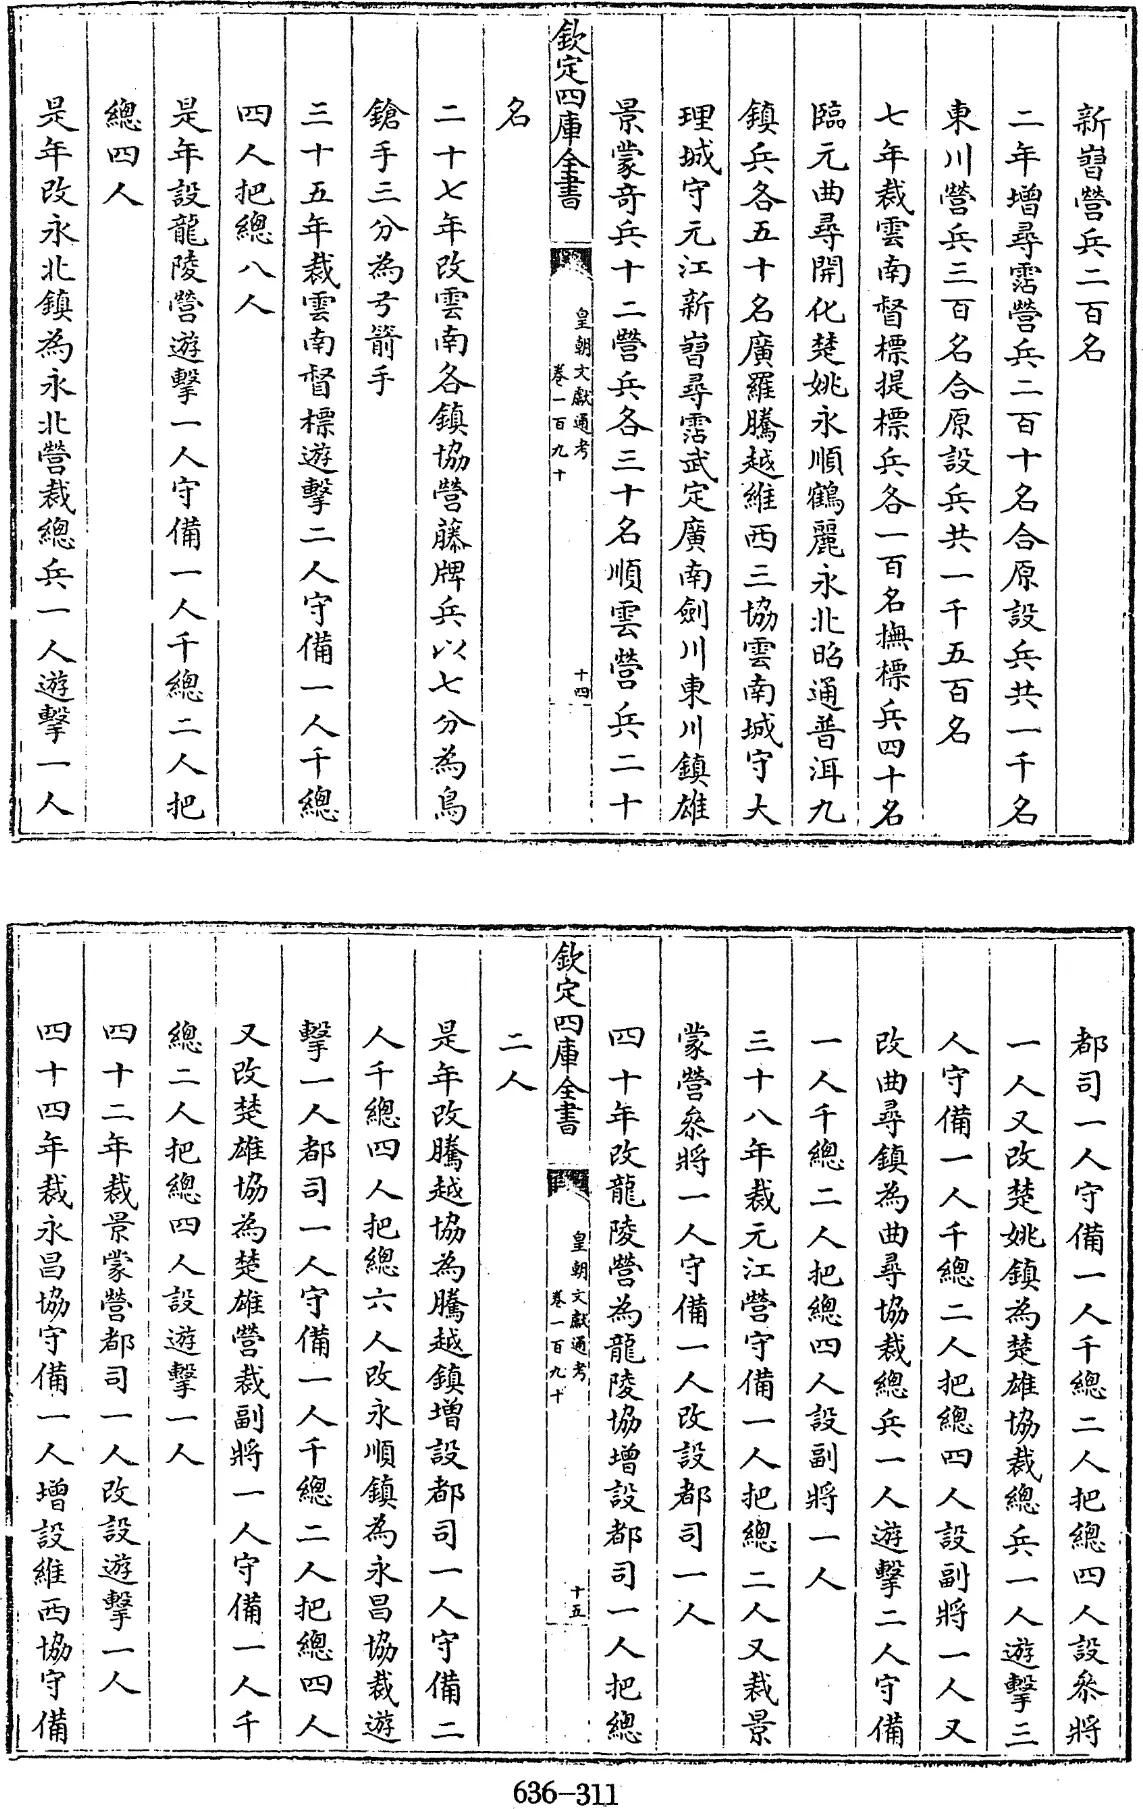 新嶍營兵二百名
二年增尋霑營兵二百十名合原設兵共一千名
東川營兵三百名合原設兵共一千五百名
七年裁雲南督標提標兵各一百名撫標兵四十名
臨元曲尋開化楚姚永順鶴麗永北昭通普洱九
鎮兵各五十名廣羅騰越維西三協雲南城守大
理城守元江新嶍尋霑武定廣南劍川東川鎮雄
景蒙奇兵十二營兵各三十名順雲營兵二十
欽定四庫全書
皇朝文獻通考
卷一百九十
十四
名
二十七年改雲南各鎮協營藤牌兵以七分為鳥
鎗手三分為弓箭手
三十五年裁雲南督標遊擊二人守備一人千總
四人把總八人
是年設龍陵營遊擊一人守備一人千總二人把
總四人
是年改永北鎮為永北營裁總兵一人遊擊一人
都司一人守備一人千總二人把總四人設叅將
一人又改楚姚鎮為楚雄協裁總兵一人遊擊三
人守備一人千總二人把總四人設副將一人又
改曲尋鎮為曲尋協裁總兵一人遊擊二人守備
一人千總二人把總四人設副將一人
三十八年裁元江營守備一人把總二人又裁景
蒙營叅將一人守備一人改設都司一人
四十年改龍陵營為龍陵協增設都司一人把總
欽定四庫全書
皇朝文獻通考
卷一百九十
十五
二人
是年改騰越協為騰越鎮增設都司一人守備二
人千總四人把總六人改永順鎮為永昌協裁遊
擊一人都司一人守備一人千總二人把總四人
又改楚雄協為楚雄營裁副將一人守備一人千
總二人把總四人設遊擊一人
四十二年裁景蒙營都司一人改設遊擊一人
四十四年裁永昌協守備一人增設維西協守備
636-311